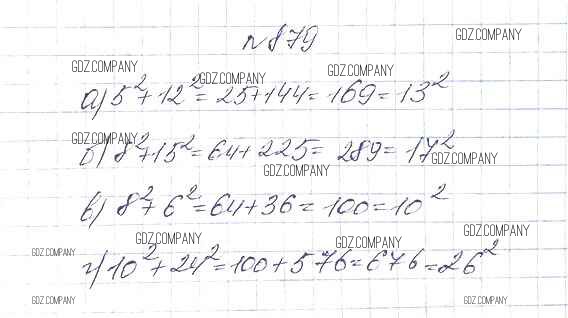 № 879
GDZ.COMPANY
GDZ.COMPANY
GDZ.COMPANY
GDZ.COMPANY
а) 5² + 12² = 25 + 144 = 169 = 13²
GDZ.COMPANY
б) 8² + 15² = 64 + 225 = 289 = 17²
GDZ.COMPANY
GDZ.COMPANY
в) 8² + 6² = 64 + 36 = 100 = 10²
GDZ.COMPANY
GDZ.COMPANY
GDZ.COMPANY
GDZ.COMPANY
г) 10² + 24² = 100 + 576 = 676 = 26²
GDZ.COMPANY
GDZ.COMPANY